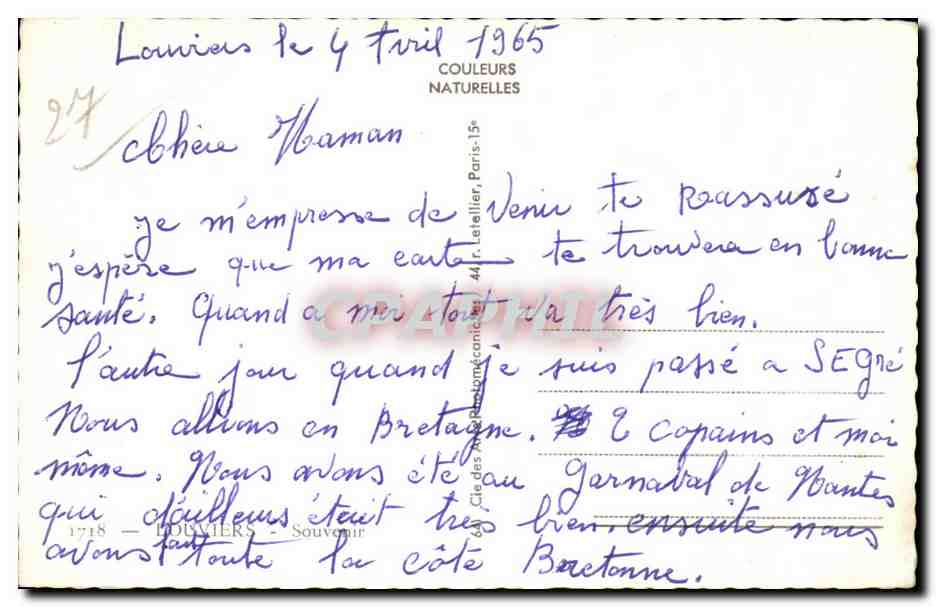 Louviers le 4 Avril 1965
COULEURS
NATURELLES
27
Chère Maman
je m'empresse de venir te Rassuré
j'espère que ma carte te trouvera en bonne
santé. Quand a moi tout va très bien.
l'autre jour quand je suis passé a SEGré
Nous allions en Bretagne. 2 copains et moi
même. Nous avons été au Carnaval de Nantes
qui d'ailleurs était très bien. ensuite nous
avons fait toute la côte Bretonne.
1718 — LOUVIERS - Souvenir
Cie des Arts Photomécaniques 44, r. Letellier, Paris-15e
CPAPHIL